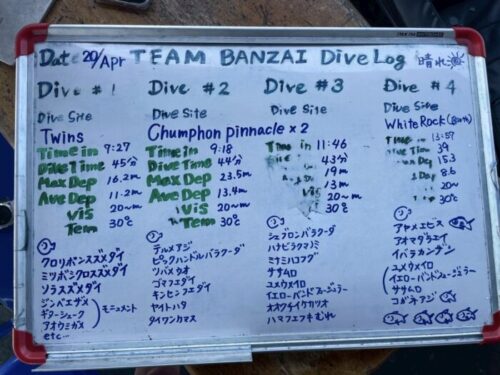 Date 20/Apr TEAM BANZAI Dive Log 晴れ
Dive # 1
Dive Site
Twins
Time in 9:27
Dive Time 45分
Max Dep 16.2m
Ave Dep 11.2m
Vis 20~m
Tem 30℃
クロリボンスズメダイ
ミツボシクロスズメダイ
ソラスズメダイ
ジンベエザメ
ギターシャーク
アオウミガメ
モニュメント
etc...
Dive # 2
Dive Site
Chumphon pinnacle × 2
Time in 9:18
Dive Time 44分
Max Dep 23.5m
Ave Dep 13.4m
Vis 20~m
Tem 30℃
テルメアジ
ピックハンドルバラクーダ
ツバメウオ
ゴマフエダイ
キンセンフエダイ
ヤイトハタ
タイワンカマス
Dive # 3
Dive Site
Time in 11:46
43分
19m
13m
Vis 20~m
Tem 30℃
シェブロンバラクーダ
ハナビラクマノミ
ミナミハコフグ
ササムロ
ユメウメイロ
イエローバンドフュージラー
オオクチイケカツオ
ハマフエフキむれ
Dive # 4
Dive Site
White Rock
Time in 13:57
39
15.3
8.6
20~
30℃
アヤメエビス
アオマダラエイ
イバラカンザシ
ユメウメイロ
イエローバンドフュージラー
ササムロ
コガネアジ